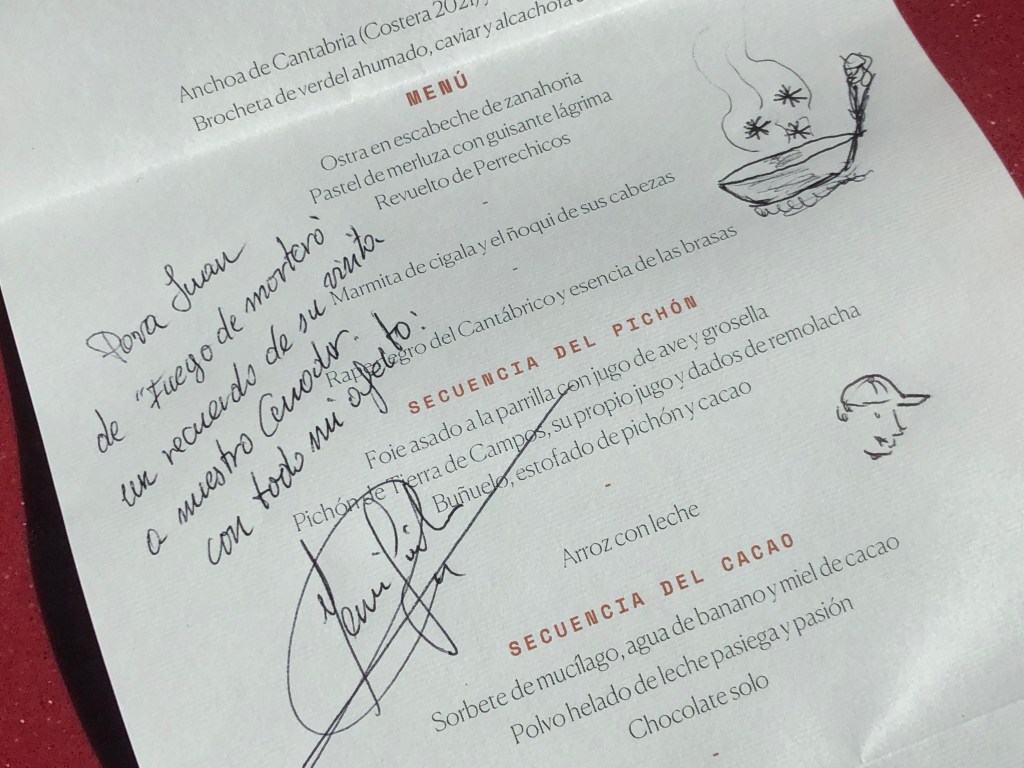 Anchoa de Cantabria (Costera 2021)
Brocheta de verdel ahumado, caviar y alcachofa
MENÚ
Ostra en escabeche de zanahoria
Pastel de merluza con guisante lágrima
Revuelto de Perrechicos
-
Marmita de cigala y el ñoqui de sus cabezas
-
Rape negro del Cantábrico y esencia de las brasas
SECUENCIA DEL PICHÓN
Foie asado a la parrilla con jugo de ave y grosella
Pichón de Tierra de Campos, su propio jugo y dados de remolacha
Buñuelo, estofado de pichón y cacao
-
Arroz con leche
SECUENCIA DEL CACAO
Sorbete de mucílago, agua de banano y miel de cacao
Polvo helado de leche pasiega y pasión
Chocolate solo
-
Para Juan
de "Fuego de mortero"
un recuerdo de su visita
a nuestro Cenador.
con todo mi afecto: